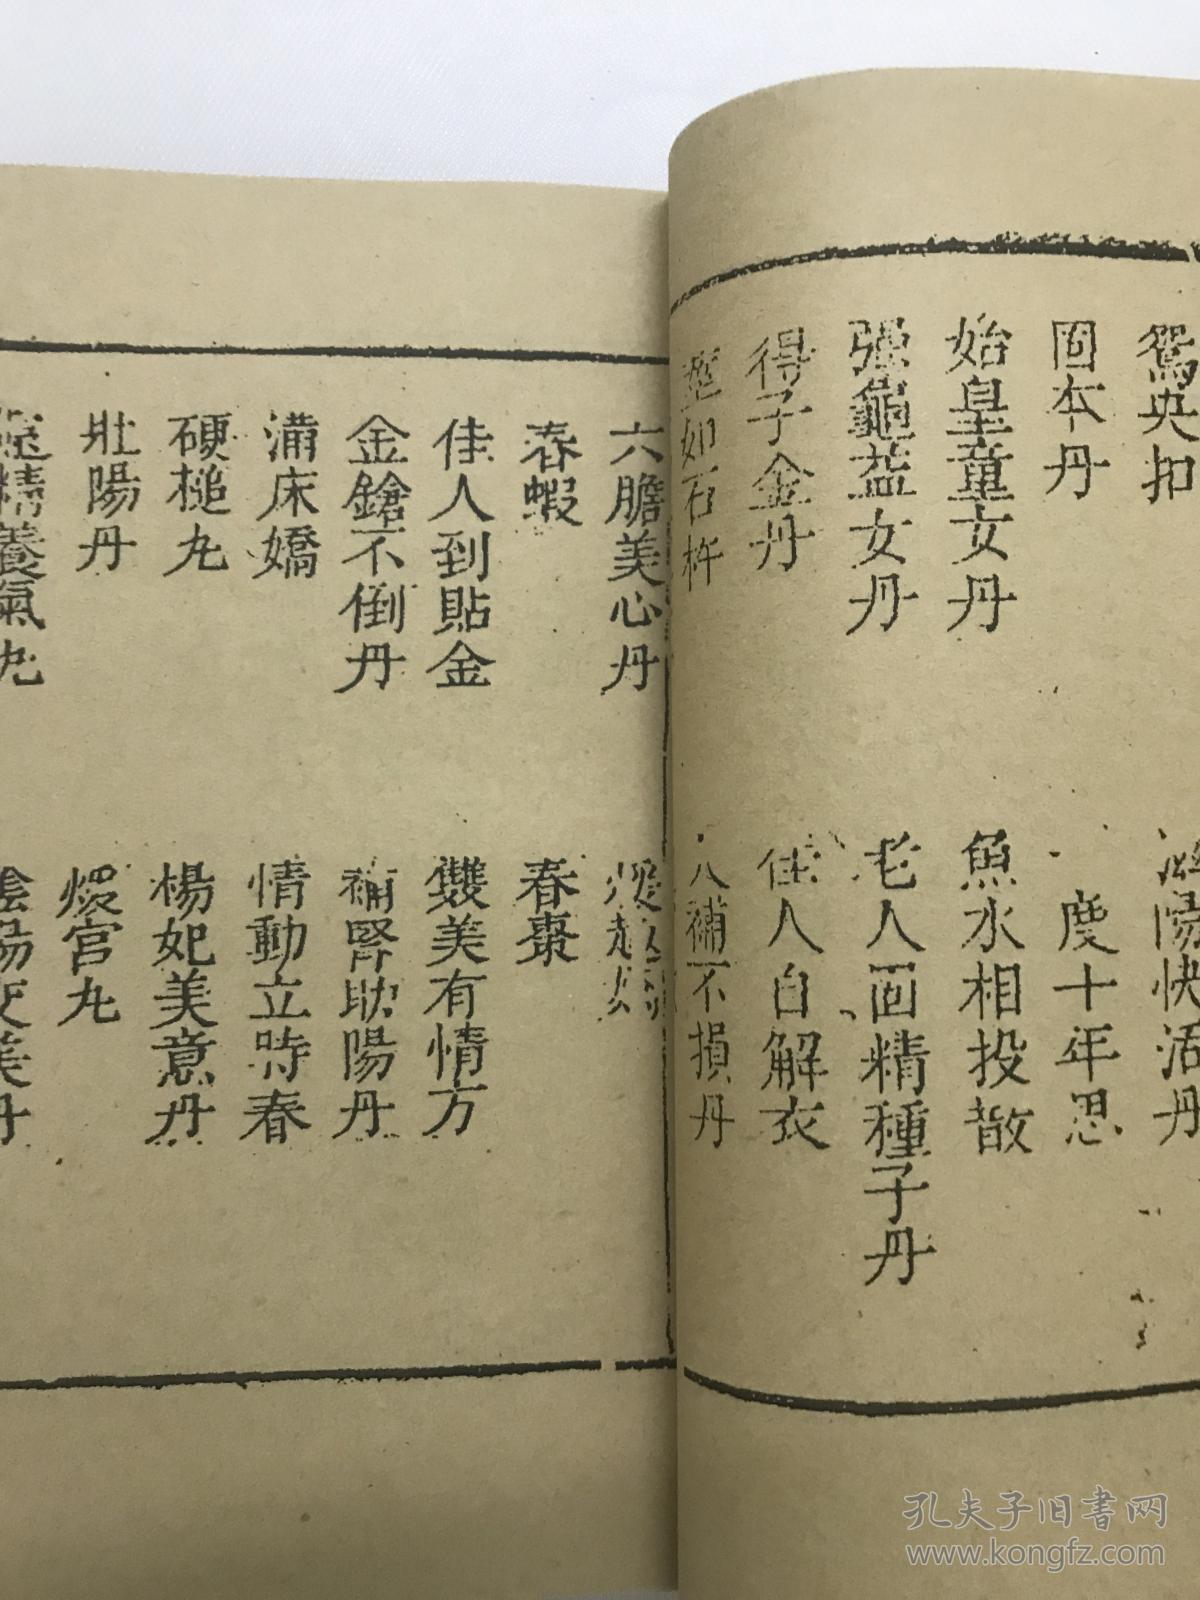 鴛央扣
陽快活丹
固本丹
度十年思
始皇童女丹
魚水相投散
强龜益女丹
老人固精種子丹
得子金丹
佳人自解衣
塑如石杵
八補不損丹
六膽美心丹
春蝦
春棗
佳人到貼金
雙美有情方
金鎗不倒丹
補腎助陽丹
滿床嬌
情動立時春
硬槌丸
楊妃美意丹
壯陽丹
煖宮丸
精養氣丸
陰陽交美丹
孔夫子旧书网
www.kongfz.com